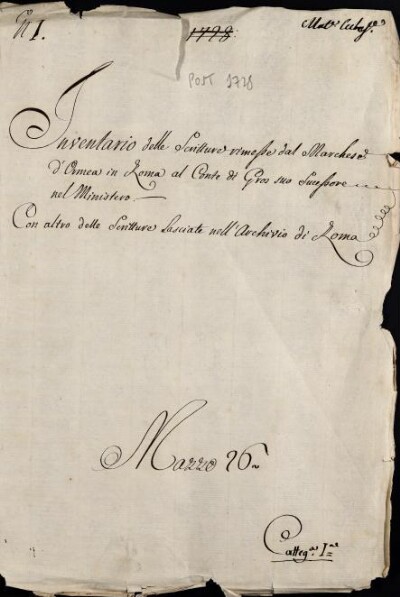 N 1.
1728
Post 1728
Inventario delle Scritture rimesse dal Marchese
d'Ormea in Roma al Conte di Gros suo Sucessore
nel Ministero
Con altro delle Scritture lasciate nell'Archivio di Roma
Mazzo 26
Catteg.a I.a